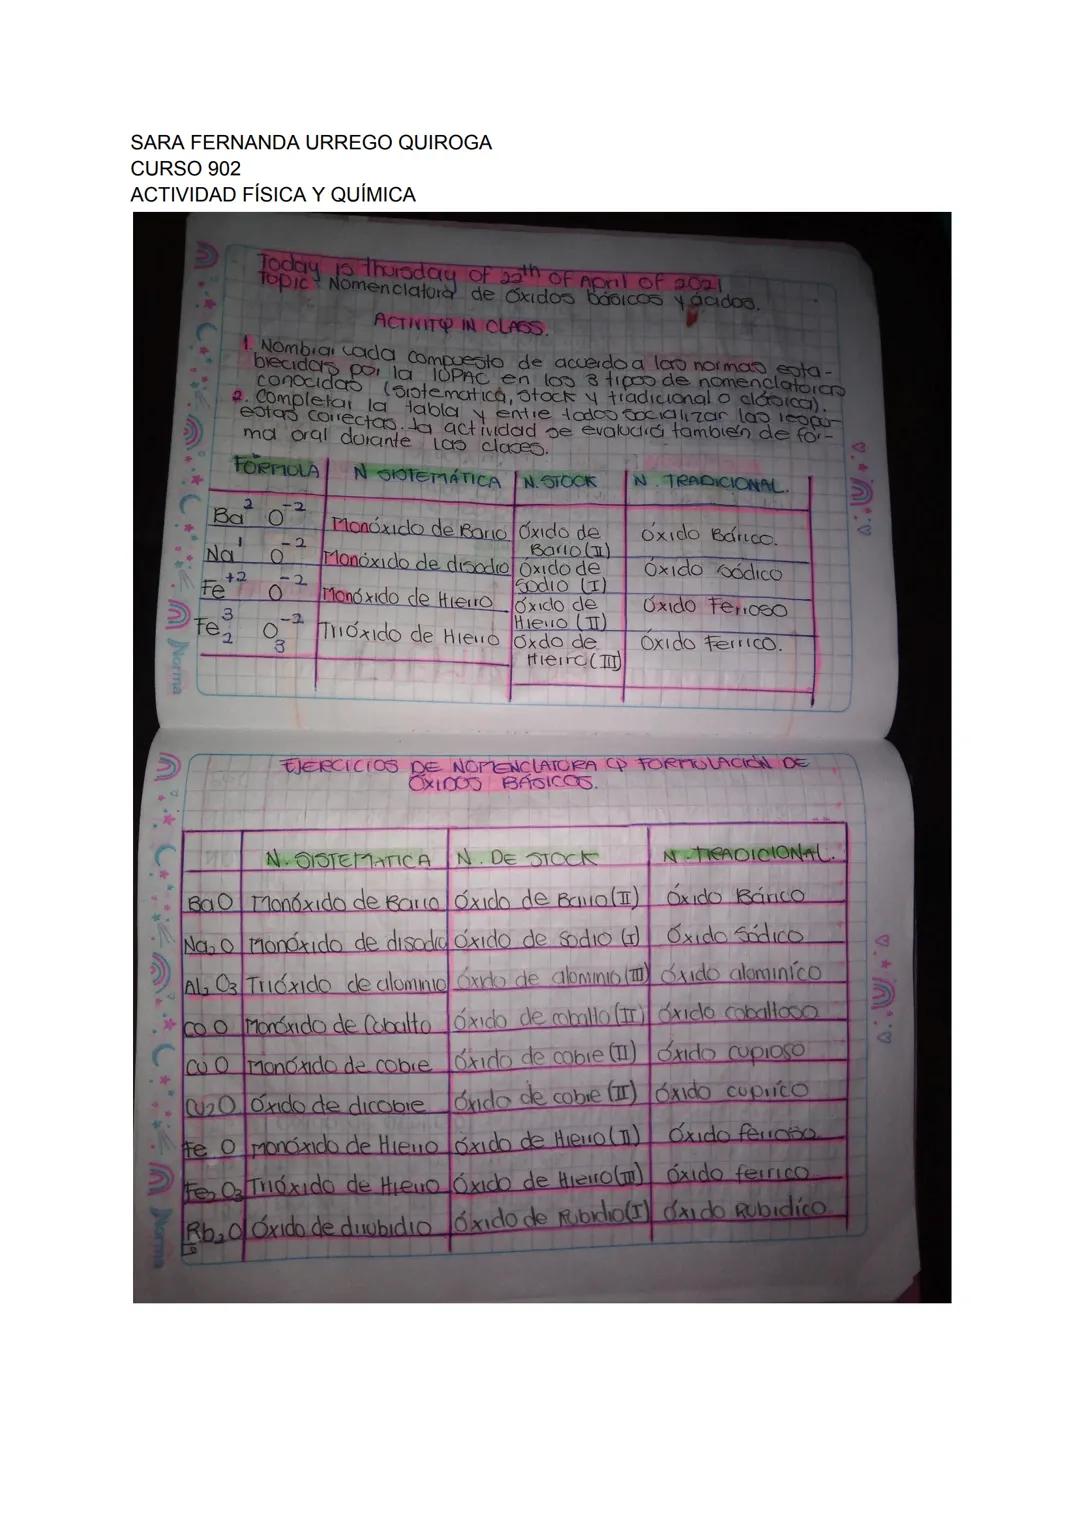 SARA FERNANDA URREGO QUIROGA
CURSO 902
ACTIVIDAD FÍSICA Y QUÍMICA
Today is thursday of 22th of April of 2021
Topic: Nomenclatura de óxidos básicos y ácidos.
ACTIVITY IN CLASS.
1. Nombrar cada compuesto de acuerdo a las normas esta-
blecidas por la IUPAC en los 3 tipos de nomenclatorias
conocidas (sistematica, stock y tradicional o clásica).
2. Completar la tabla y entre todos socializar las respu-
estas correctas. La actividad se evaluará también de for-
ma oral durante las clases.
FORMULA N SISTEMÁTICA N. STOCK N. TRADICIONAL.
Ba 2 O -2 Monóxido de Bario Óxido de Bario (II) óxido Bárico.
Na 1 O -2 Monóxido de disodio Óxido de sodio (I) óxido sódico
Fe +2 O -2 Monóxido de Hierro óxido de Hierro (II) Óxido Ferroso
Fe 3 2 O -2 3 Trióxido de Hierro Óxdo de Hierro (III) Óxido Ferrico.
Norma
EJERCICIOS DE NOMENCLATURA Y FORMULACIÓN DE
ÓXIDOS BÁSICOS.
N. SISTEMATICA N. DE STOCK N. TRADICIONAL.
BaO Monóxido de Bario Óxido de Bario (II) Óxido Bárico
Na2O Monóxido de disodio Óxido de sodio (I) Óxido Sódico
Al2O3 Trióxido de aluminio óxido de aluminio (III) óxido aluminíco
COO Monóxido de Cobalto óxido de cobalto (II) óxido cobaltoso
CUO Monóxido de cobre óxido de cobre (II) óxido cuproso
CU2O Óxido de dicobre óxido de cobre (II) óxido cuprico
Fe O Monóxido de Hierro óxido de Hierro (II) óxido ferroso
Fe2O3 Trióxido de Hierro óxido de Hierro (III) óxido ferrico
Rb2O Óxido de dirubidio óxido de Rubidio (I) óxido Rubidíco
Norma